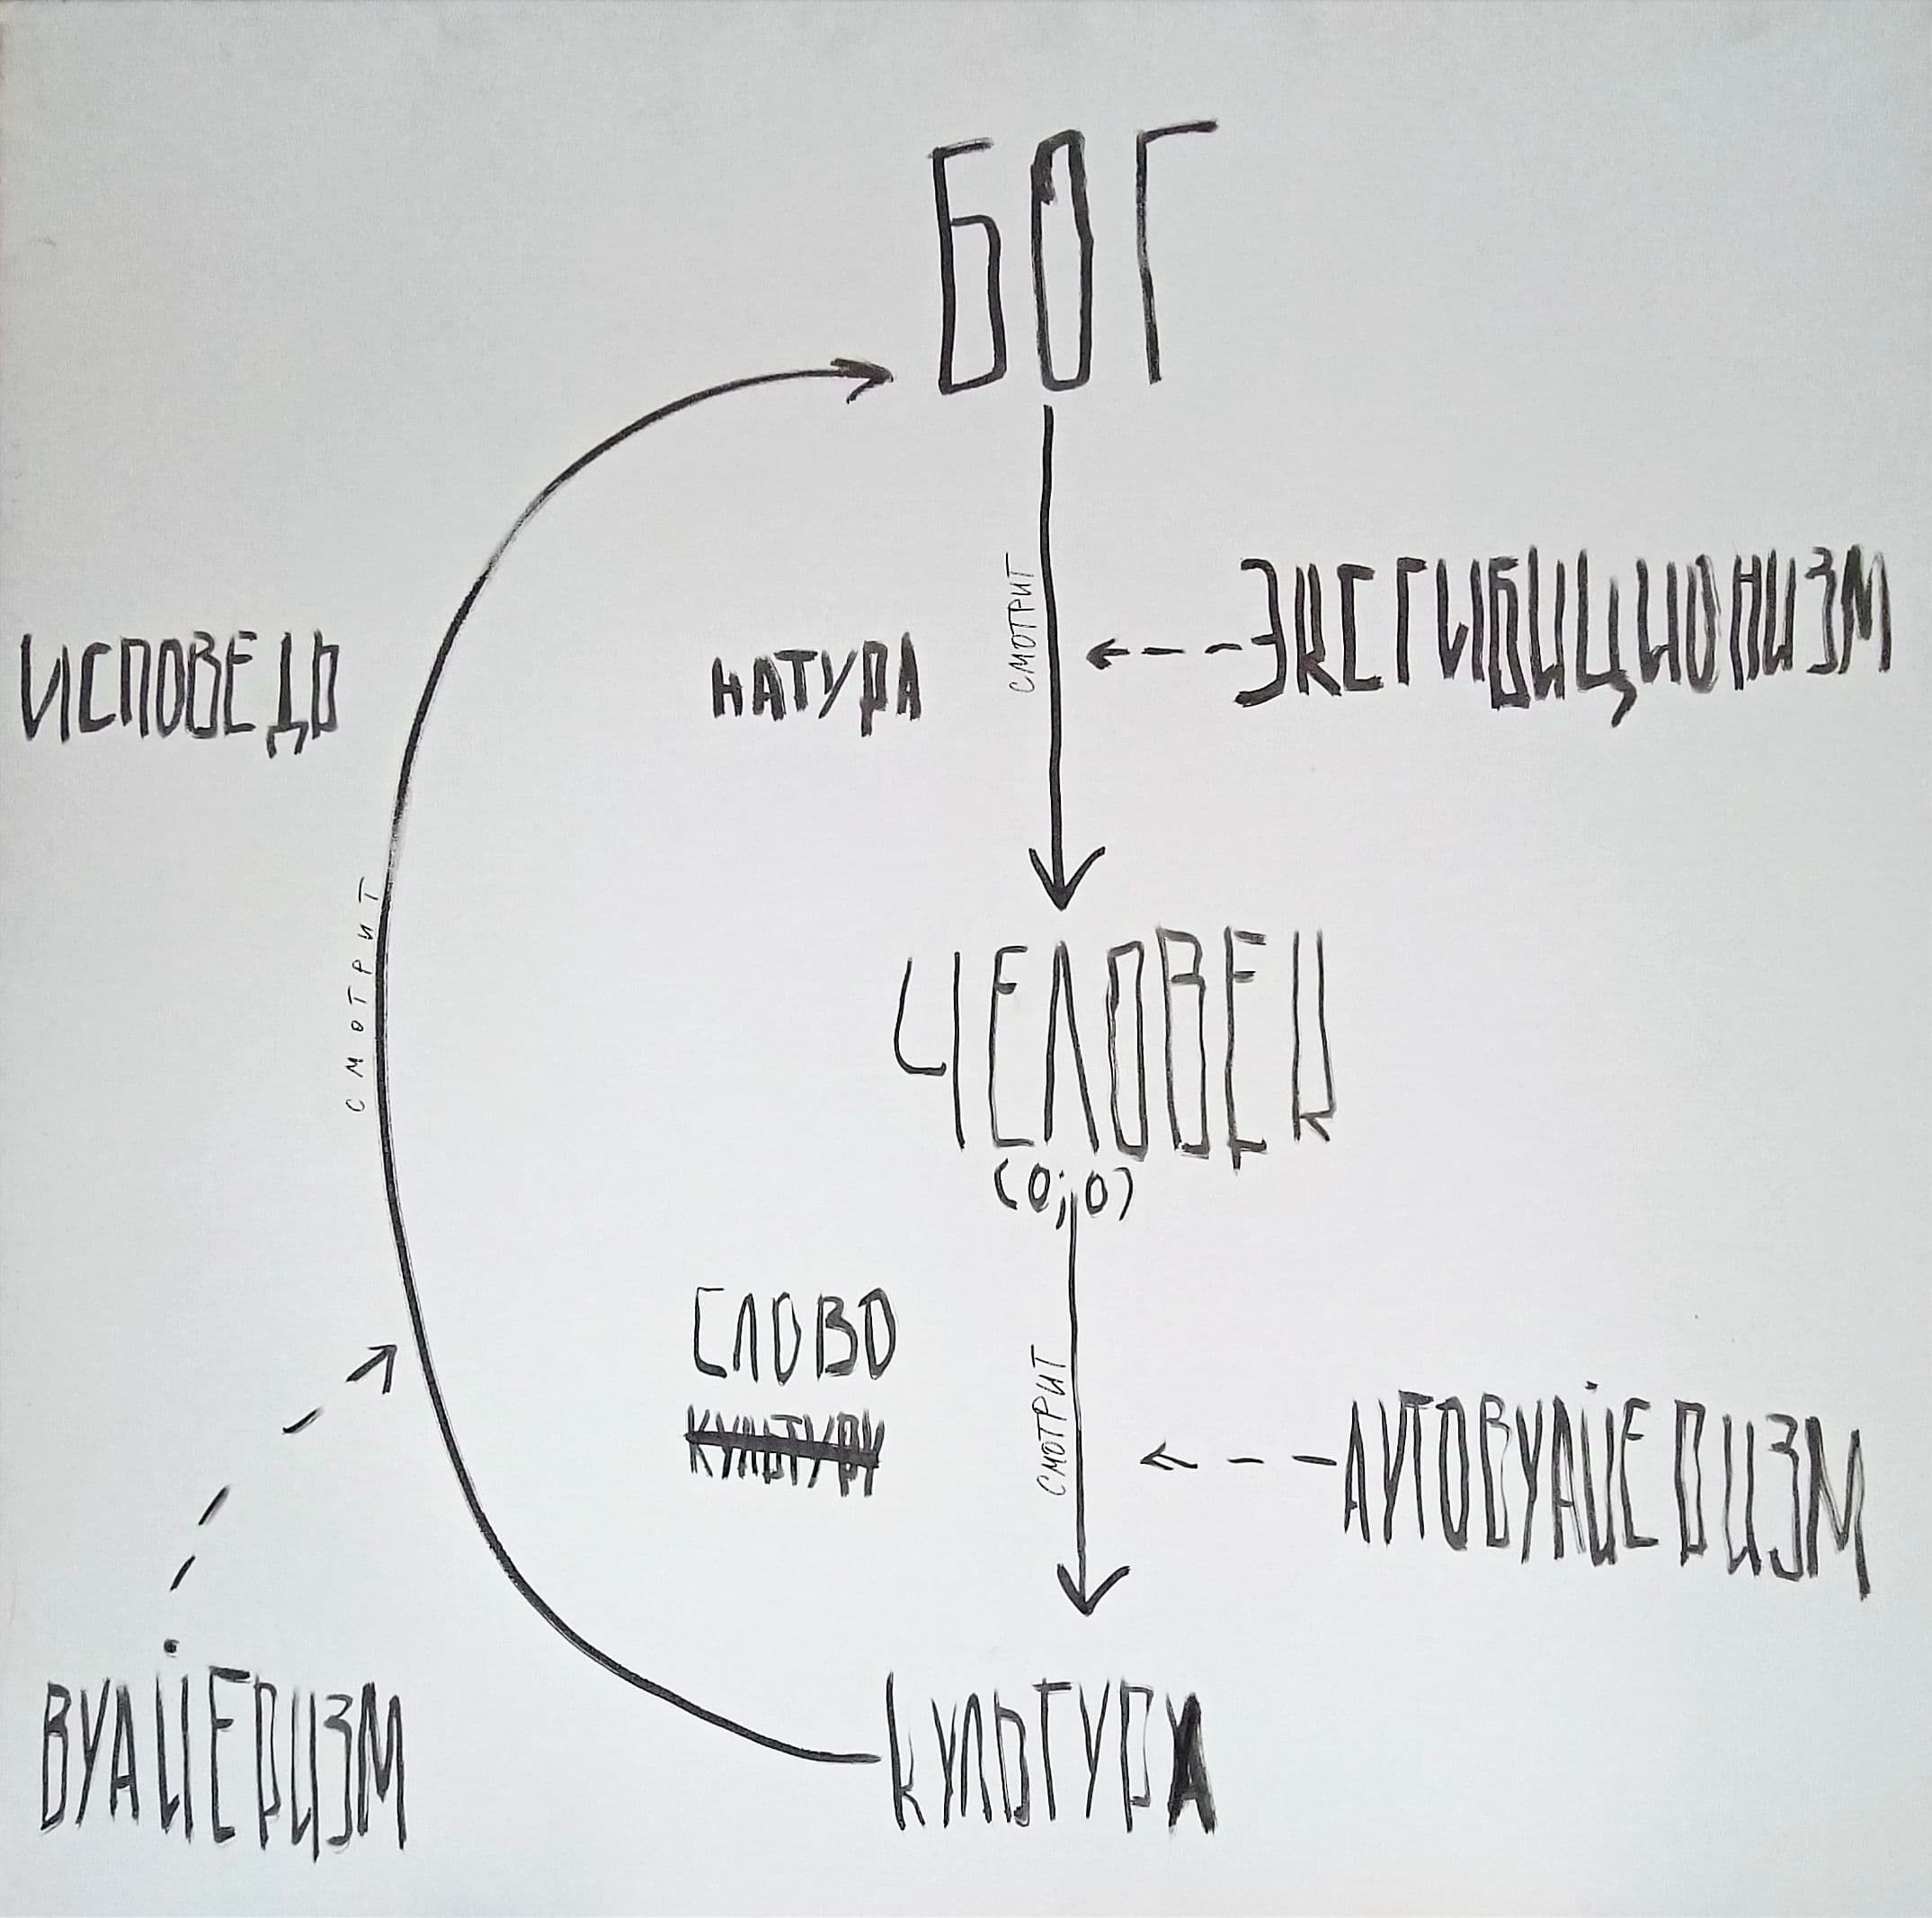 БОГ
СМОТРИТ
ЭКСГИБИЦИОНИЗМ
НАТУРА
ИСПОВЕДЬ
ЧЕЛОВЕК
(0;0)
СМОТРИТ
СЛОВО
КУЛЬТУРУ
СМОТРИТ
АУТОВУАЙЕРИЗМ
ВУАЙЕРИЗМ
КУЛЬТУРА